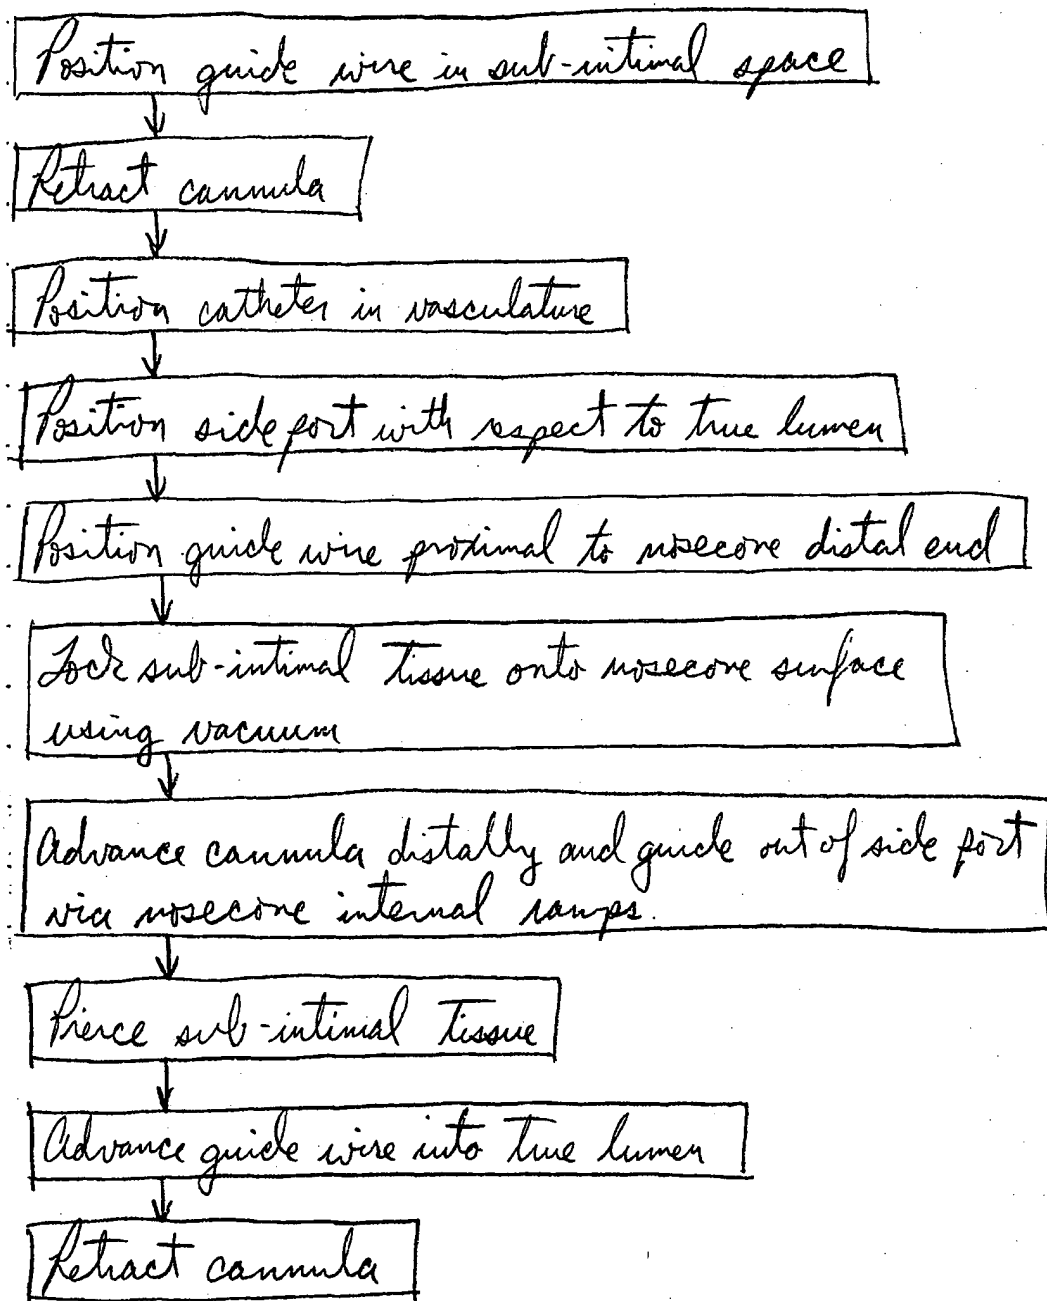 Position guide wire in sub-intimal space
Retract cannula
Position catheter in vasculature
Position side port with respect to true lumen
Position guide wire proximal to nosecone distal end
Lock sub-intimal tissue onto nosecone surface
using vacuum
Advance cannula distally and guide out of side port
via nosecone internal ramps.
Pierce sub-intimal tissue
Advance guide wire into true lumen
Retract cannula